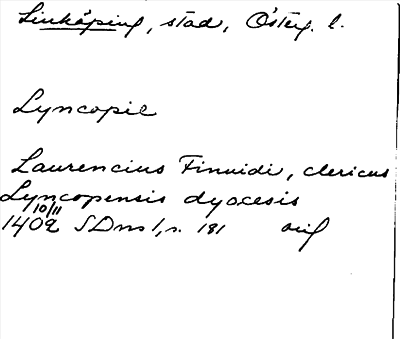 Linköping, stad, Österg. l.
Lyncopie
Laurencius Finuidi, clericus
Lyncopensis dyocesis
10/11
1402 SDns 1, s. 181 orig